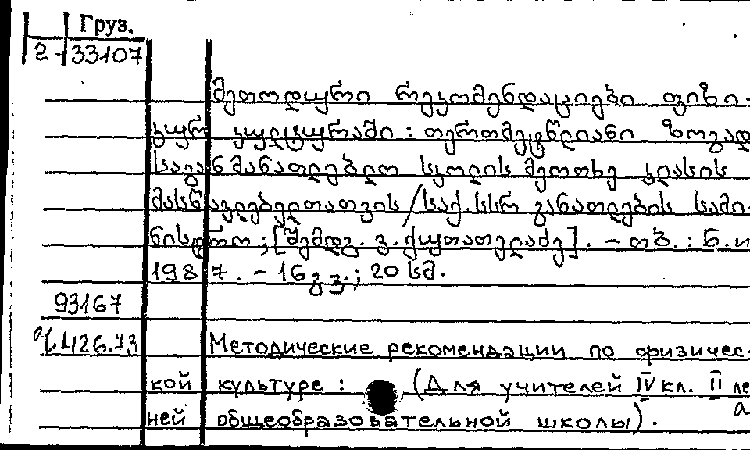 Груз.
2-33107
მეთოდური რეკომენდაციები ფიზი-
კურ კულტურაში : თერთმეტწლიანი ზოგად
საგანმანათლებლო სკოლის მეოთხე კლასის
მასწავლებელთათვის /საქ.სსრ განათლების სამი-
ნისტრო ; [შემდგ. ვ.ქუთათელაძე]. - თბ. : ნ.ი
1987. - 16 გვ.; 20 სმ.
93167
426.73
Методические рекомендации по физичес-
кой культуре : (Для учителей IV кл. II ле
ней общеобразовательной школы).